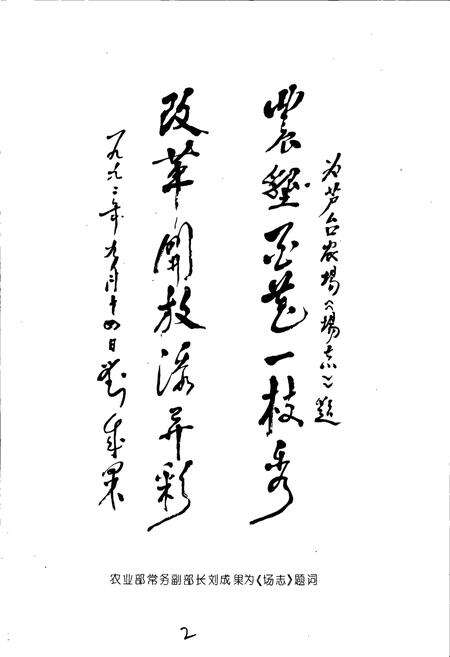 为芦台农場《場志》题
農墾百花一枝秀
改革開放添异彩
一九九二年九月十四日刘成果
农业部常务副部长刘成果为《场志》题词
2